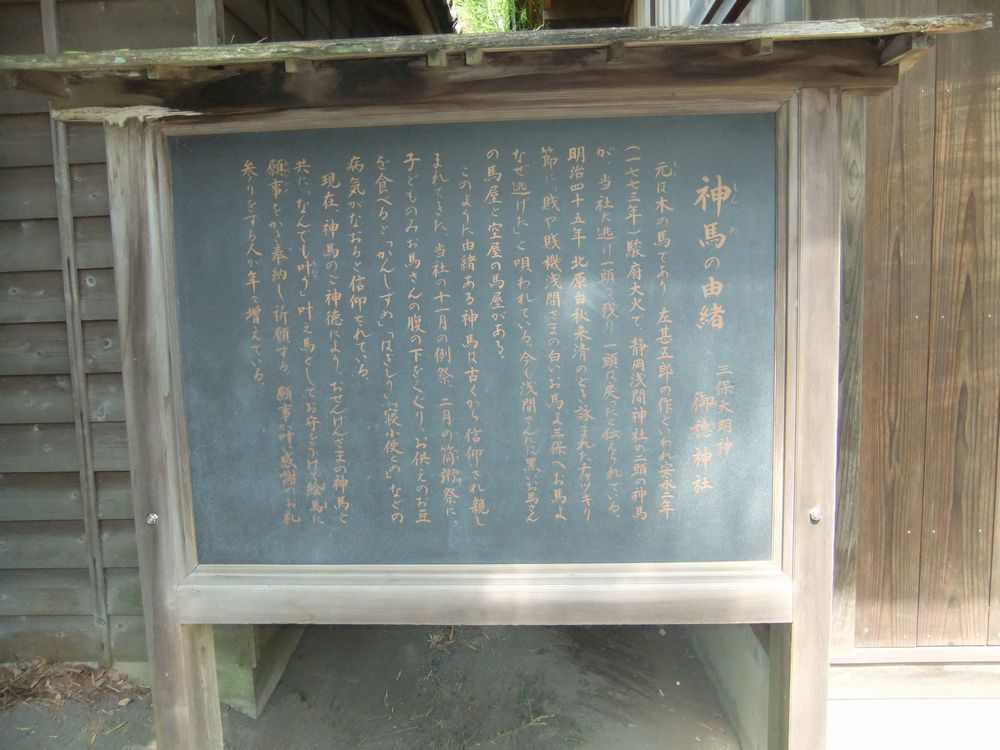 神馬の由緒
三保大明神
御穂神社
元は木の馬であり 左甚五郎の作といわれ安永二年
(一七七三年)駿府大火で、静岡浅間神社の二頭の神馬
が、当社に逃げ一頭は残り一頭は戻ったと伝えられている。
明治四十五年 北原白秋来清のとき詠まれたチャッキリ
節に「賎や賎機浅間さまの白いお馬よ三保へお馬よ
なぜ逃げた」と唄われている。今も浅間さんには黒いお馬さん
の馬屋と空屋の馬屋がある。
このように由緒ある神馬は古くから信仰され親し
まれてきた。当社の十一月の例祭、二月の筒粥祭に、
子どものみお馬さんの腹の下をくぐり、お供えのお豆
を食べると「かんしずめ」「はぎしり」「寝小便どめ」などの
病気がなおると信仰されている。
現在、神馬のご神徳により、おせんげんさまの神馬と
共に「なんでも叶う」叶え馬としてお守をうけて絵馬に、
願事をかき奉納し祈願する。願事が叶い感謝のお礼
参りをする人が年々増えている。